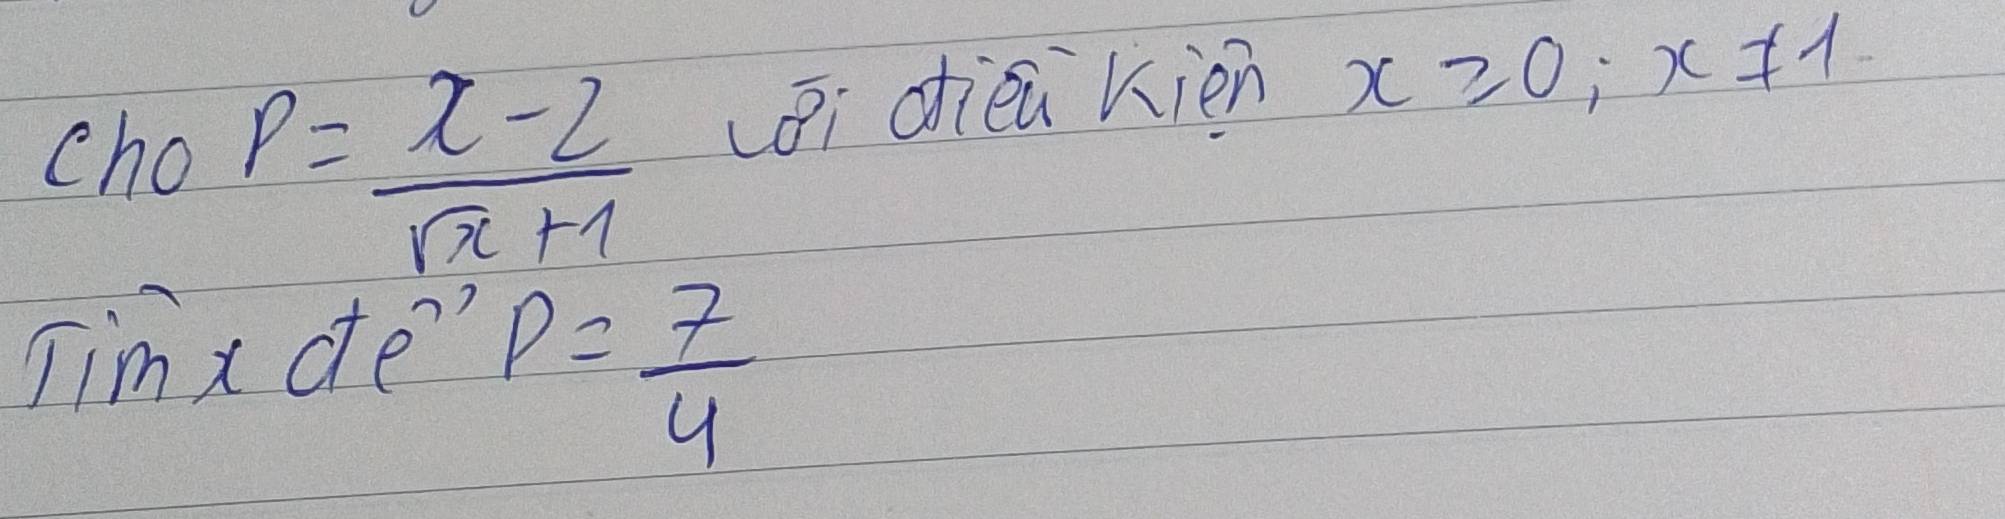 Cho P = \frac{x-2}{\sqrt{x}+1} với điều kiện x ≥ 0; x ≠ 1.
Tìm x để P = \frac{7}{4}